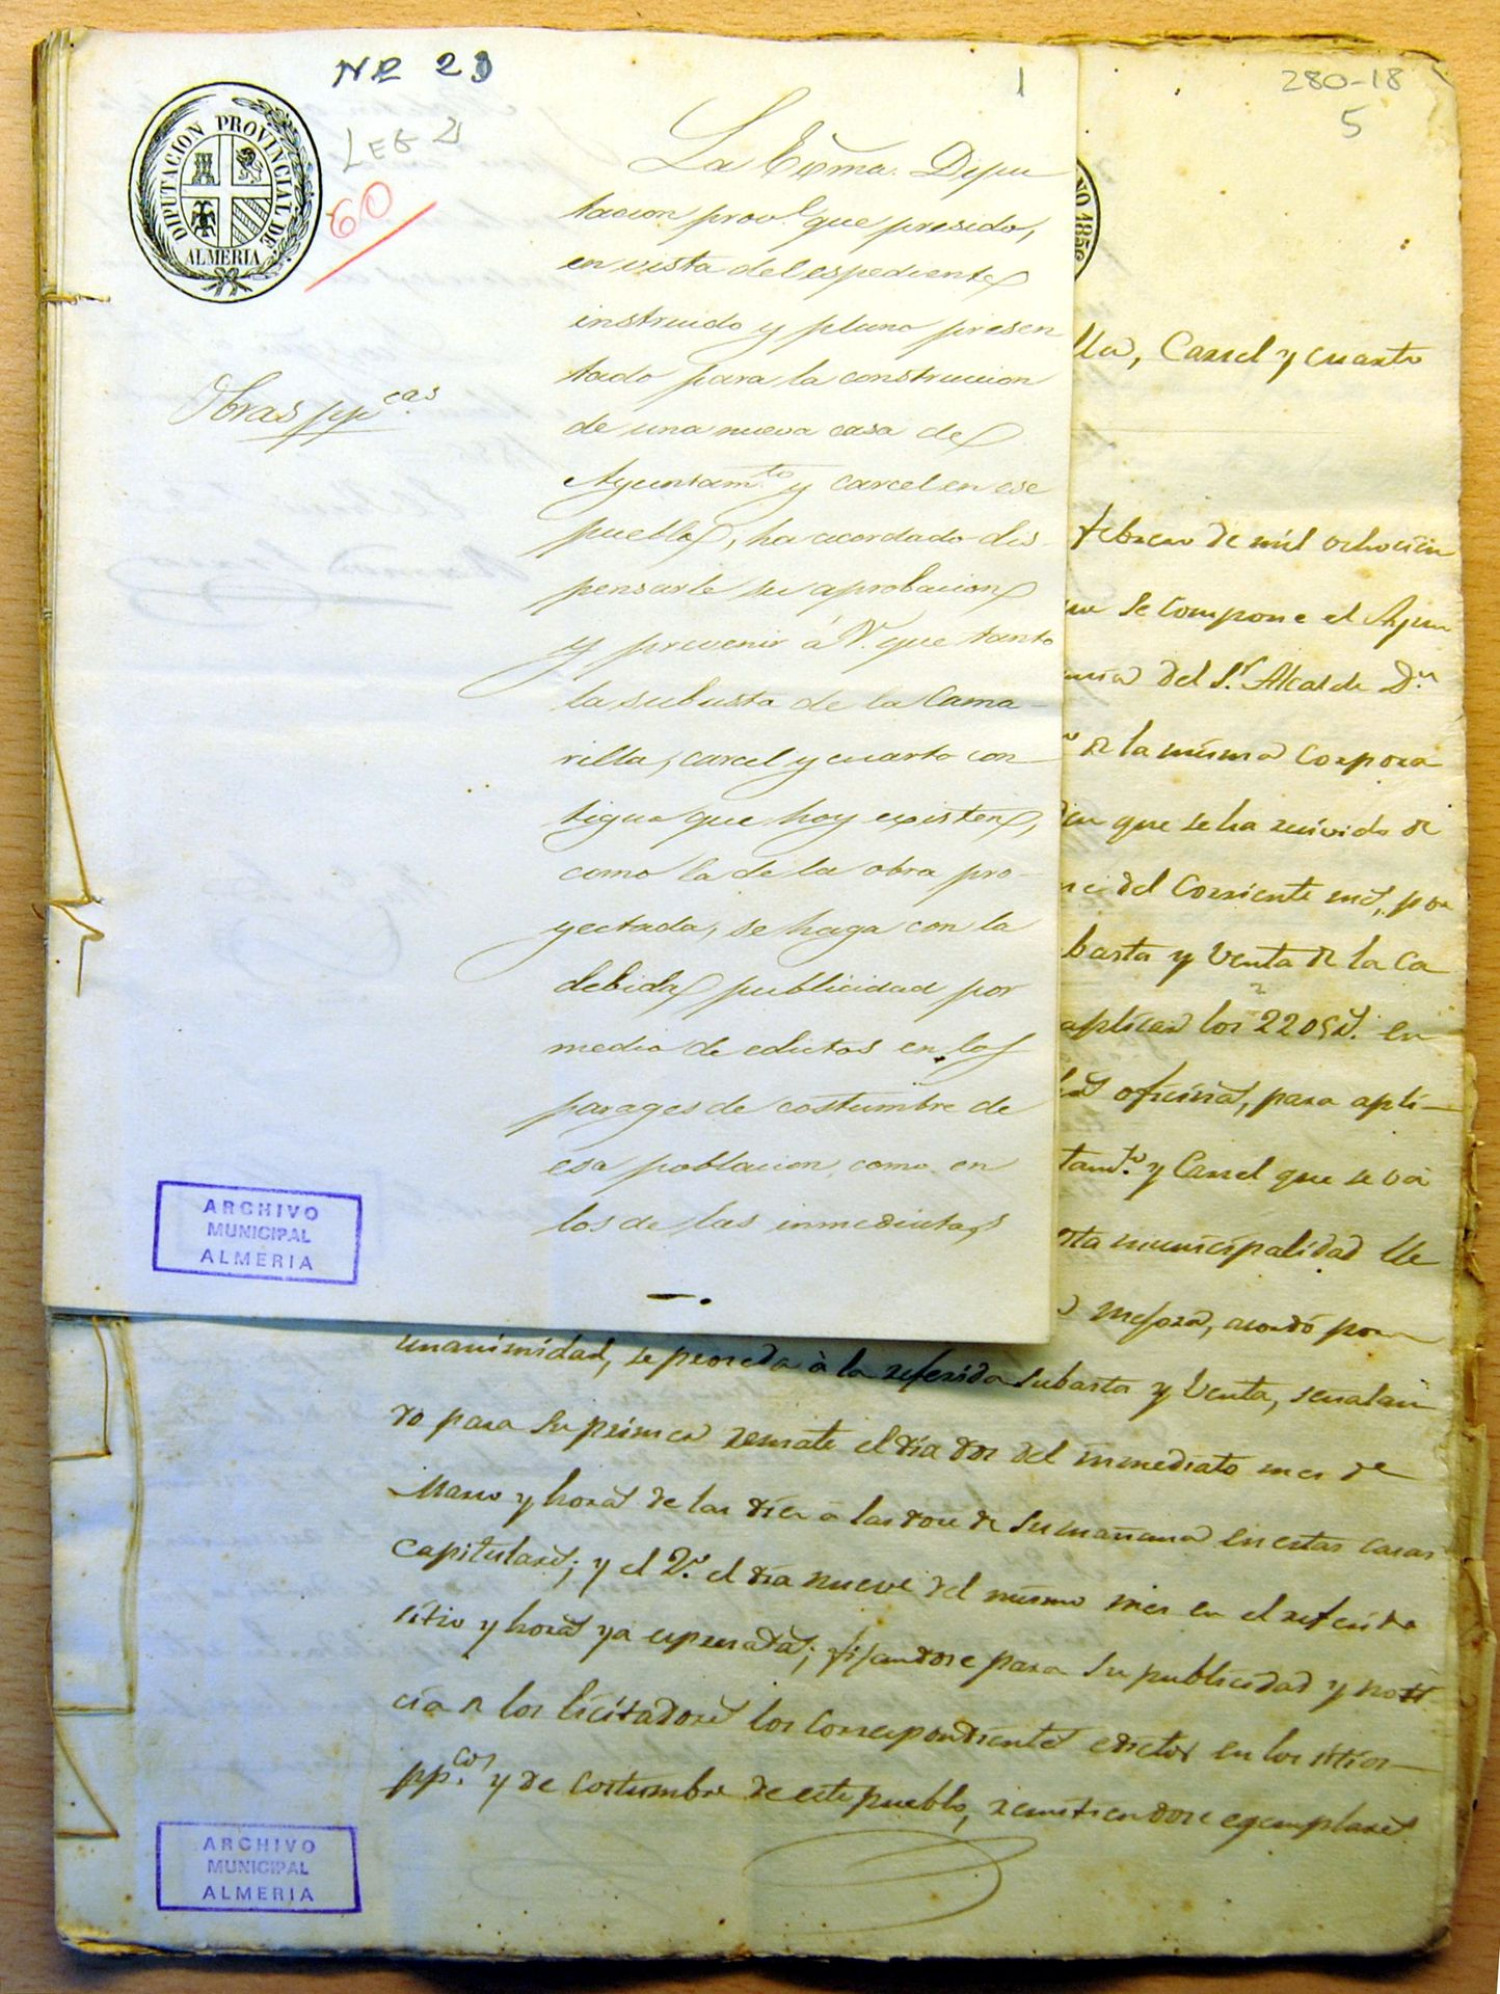 Nº 23
1
LEG 21
60
DIPUTACION PROVINCIAL DE
ALMERIA
Obras pp.cas
La Exma. Dipu
tacion provl. que presido,
en vista del espediente
instruido y plano presen
tado para la construccion
de una nueva casa de
Ayuntamto. y carcel en ese
pueblo, ha acordado dis-
pensarle su aprobacion
y prevenir á V. que tanto
la subasta de la Cama-
rilla, carcel y cuarto con-
tiguo que hoy existen,
como la de la obra pro-
yectada, se haga con la
debida publicidad por
medio de edictos en los
parages de costumbre de
esa poblacion, como en
los de las inmediatas
ARCHIVO
MUNICIPAL
ALMERIA
280-18
5
NO 1856
lla, Carcel y cuarto
febrero de mil ochocien
que se compone el Ayun
del Sr. Alcalde Dn.
de la misma Corpora
que se ha recivido de
del Corriente mes, por
basta y Venta de la Ca
aplicar los 2205 en
oficinas, para apli-
tamto. y Carcel que se vá
esta municipalidad
mejora, acordó por
unanimidad, se proceda à la referida Subasta y Venta, senalan
do para su primer remate el dia dos del inmediato mes de
Marzo y horas de las diez a las doce de su mañana en estas casas
Capitulares; y el 2º. el dia nueve del mismo mes en el referido
sitio y horas ya espresadas; fijandose para su publicidad y noti-
cia de los licitadores los correspondientes edictos en los sitios
pp.cos y de costumbre de este pueblo, remitiendose egemplares
ARCHIVO
MUNICIPAL
ALMERIA